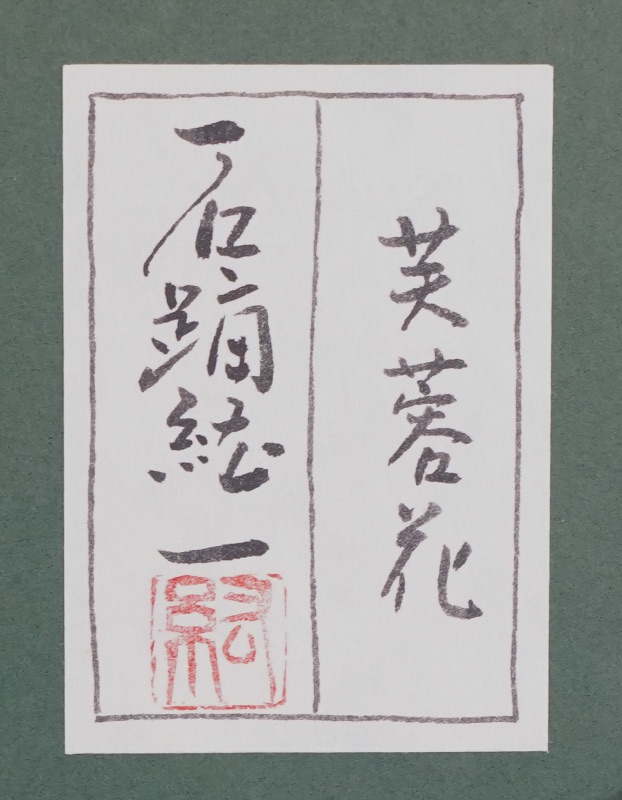 芙蓉花
石踊紘一
紘